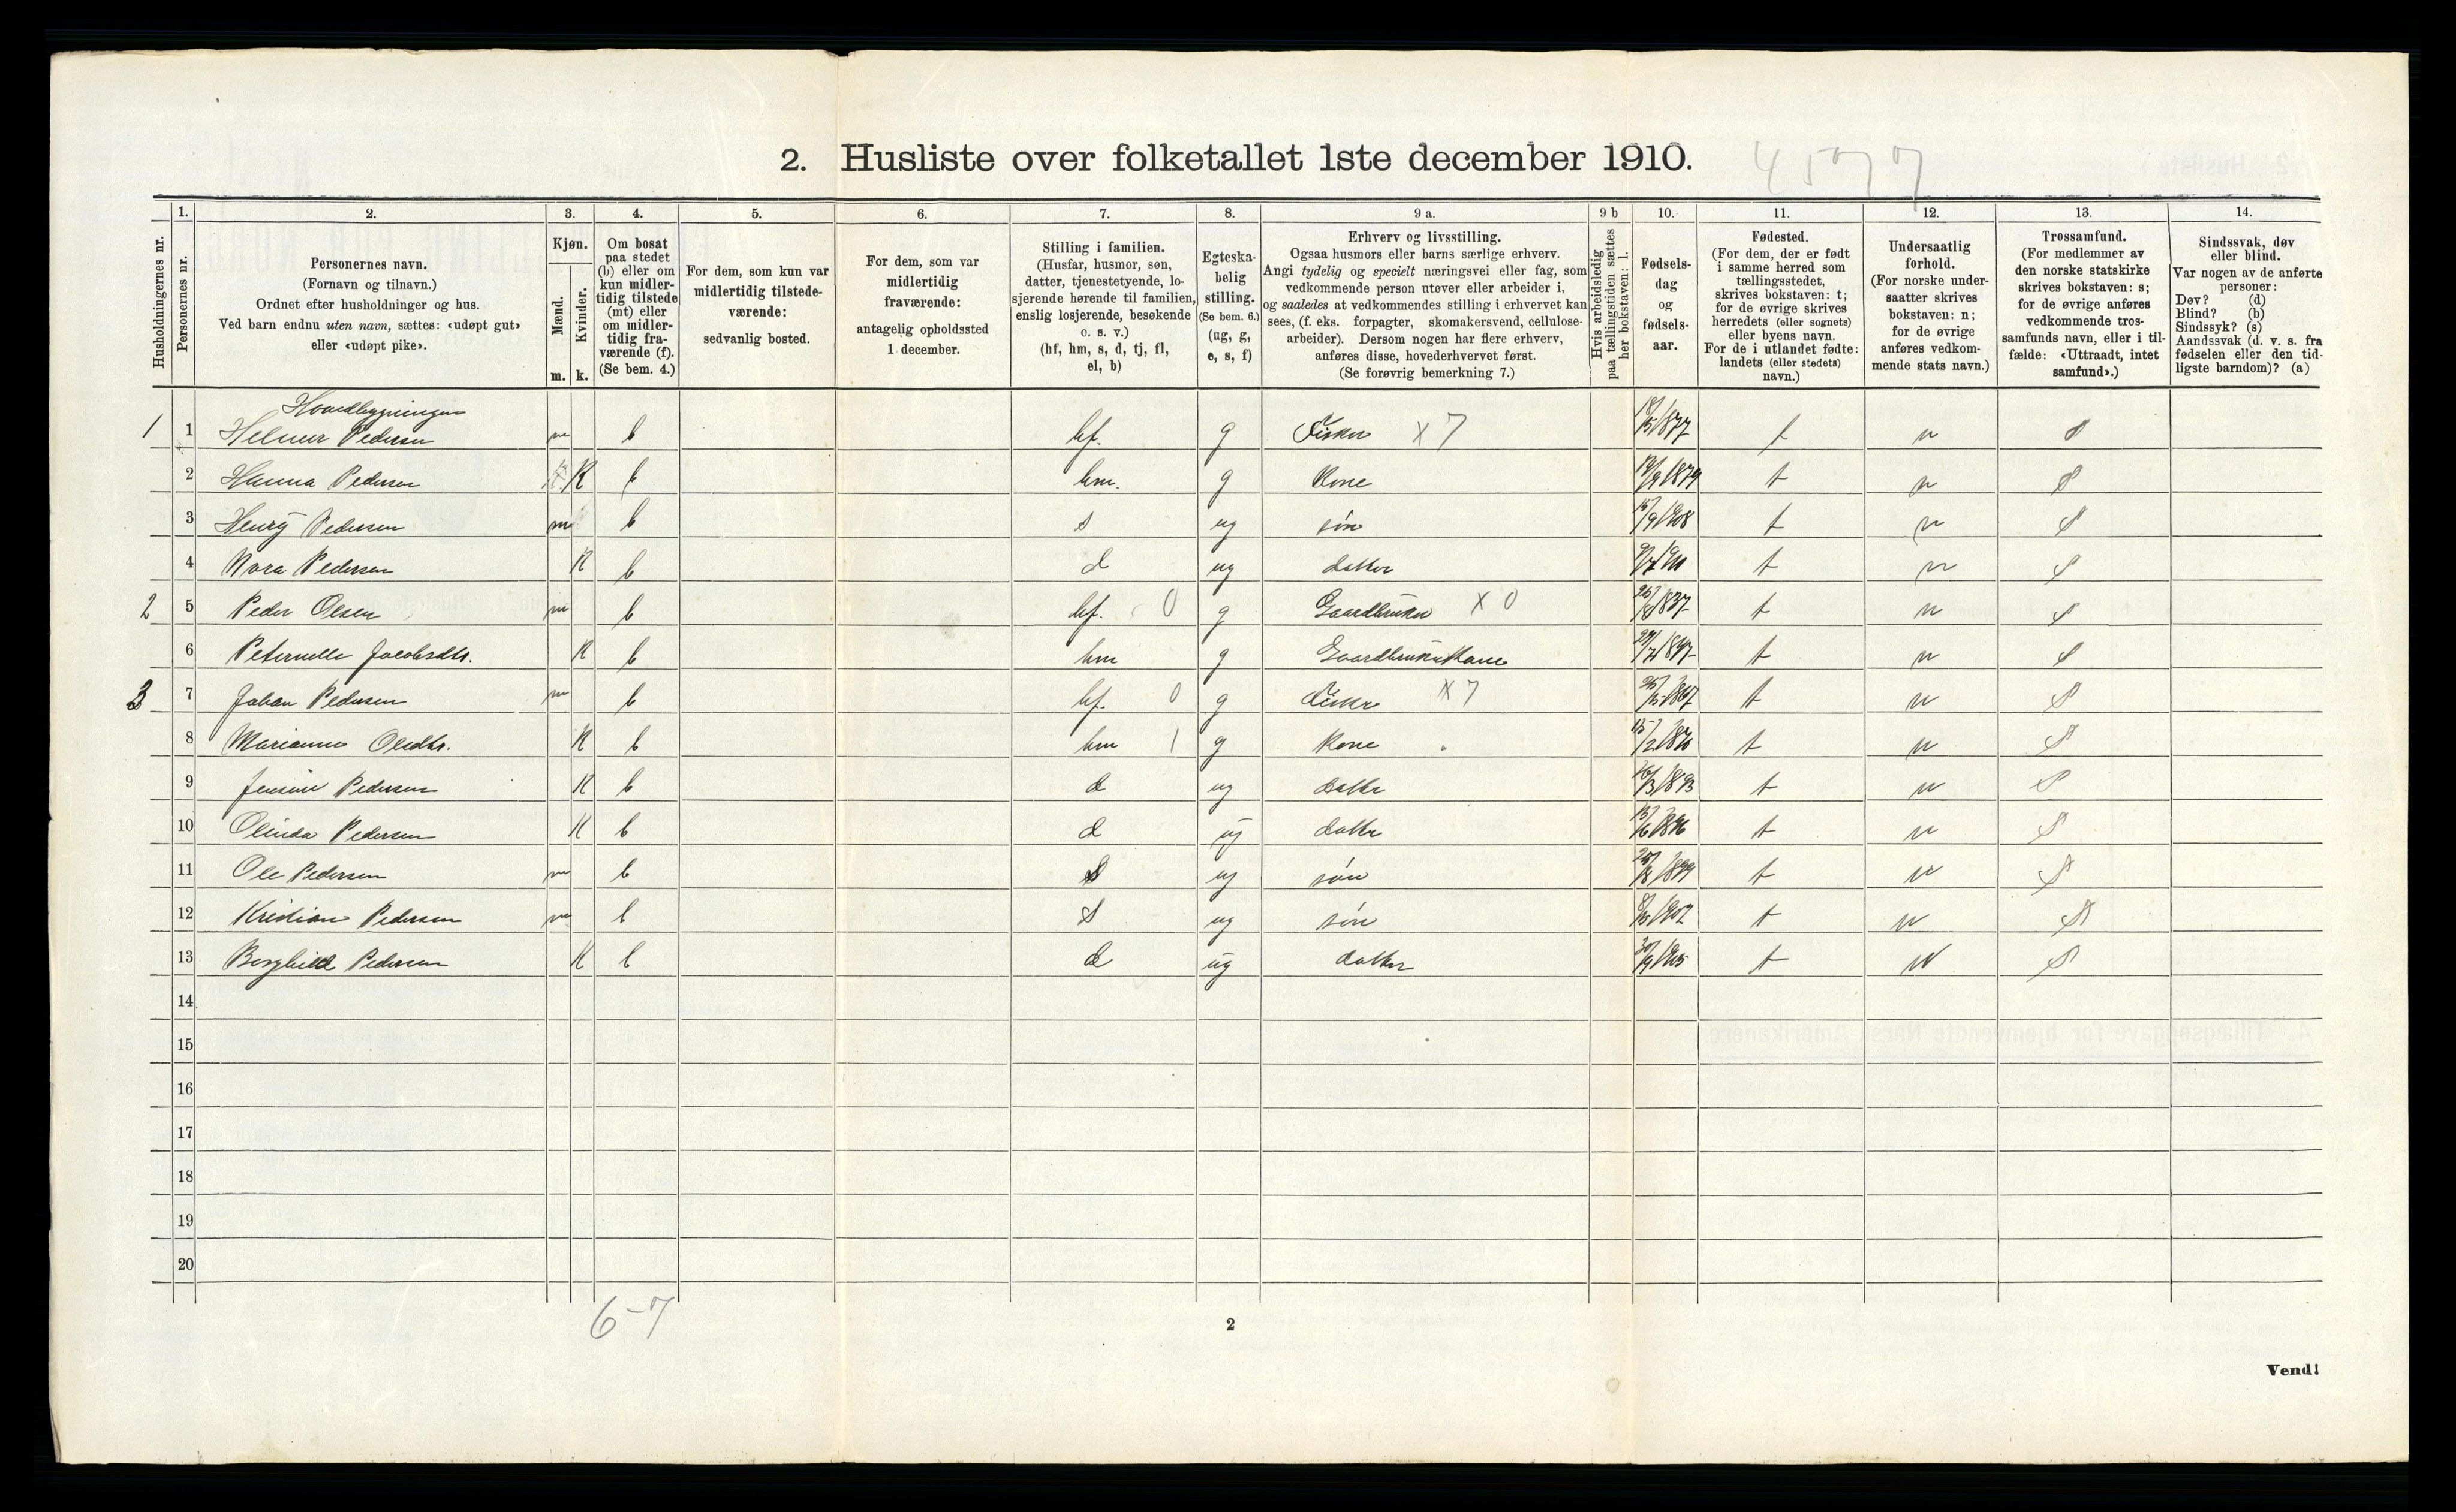 2. Husliste over folketallet 1ste december 1910.
4577
Husholdningernes nr.
1.
Personernes nr.
2.
Personernes navn.
(Fornavn og tilnavn.)
Ordnet efter husholdninger og hus.
Ved barn endnu uten navn, sættes: «udøpt gut»
eller «udøpt pike».
3.
Kjøn.
Mænd.
Kvinder.
m. k.
4.
Om bosat
paa stedet
(b) eller om
kun midler-
tidig tilstede
(mt) eller
om midler-
tidig fra-
værende (f).
(Se bem. 4.)
5.
For dem, som kun var
midlertidig tilstede-
værende:
sedvanlig bosted.
6.
For dem, som var
midlertidig
fraværende:
antagelig opholdssted
1 december.
7.
Stilling i familien.
(Husfar, husmor, søn,
datter, tjenestetyende, lo-
sjerende hørende til familien,
enslig losjerende, besøkende
o. s. v.)
(hf, hm, s, d, tj, fl,
el, b)
8.
Egteska-
belig
stilling.
(Se bem. 6.)
(ug, g,
e, s, f)
9 a.
Erhverv og livsstilling.
Ogsaa husmors eller barns særlige erhverv.
Angi tydelig og specielt næringsvei eller fag, som
vedkommende person utøver eller arbeider i,
og saaledes at vedkommendes stilling i erhvervet kan
sees, (f. eks. forpagter, skomakersvend, cellulose-
arbeider). Dersom nogen har flere erhverv,
anføres disse, hovederhvervet først.
(Se forøvrig bemerkning 7.)
9 b
Hvis arbeidsledig
paa tællingstiden sættes
her bokstaven: l.
10.
Fødsels-
dag
og
fødsels-
aar.
11.
Fødested.
(For dem, der er født
i samme herred som
tællingsstedet,
skrives bokstaven: t;
for de øvrige skrives
herredets (eller sognets)
eller byens navn.
For de i utlandet fødte:
landets (eller stedets)
navn.)
12.
Undersaatlig
forhold.
(For norske under-
saatter skrives
bokstaven: n;
for de øvrige
anføres vedkom-
mende stats navn.)
13.
Trossamfund.
(For medlemmer av
den norske statskirke
skrives bokstaven: s;
for de øvrige anføres
vedkommende tros-
samfunds navn, eller i til-
fælde: «Uttraadt, intet
samfund».)
14.
Sindssvak, døv
eller blind.
Var nogen av de anførte
personer:
Døv? (d)
Blind? (b)
Sindssyk? (s)
Aandssvak (d. v. s. fra
fødselen eller den tid-
ligste barndom)? (a)
Hovedbygningen
1 1 Helmer Pedersen m b hf. g Fisker x 7 1877 t n s
2 Hanna Pedersen K b hm. g Kone 1879 t n s
3 Henry Pedersen m b s ug søn 15/9 1908 t n s
4 Nora Pedersen K b d ug datter t n s
2 5 Peder Olsen m b hf. 0 g Gaardbruker x 0 1837 t n s
6 Peternelle Jacobsdtr. K b hm g Gaardbrukerkone t n s
3 7 Johan Pedersen m b hf. 0 g Fisker x 7 1867 t n s
8 Marianne Olsdtr. K b hm 1 g Kone 15/2 1870 t n s
9 Jensine Pedersen K b d ug datter 26/3 1893 t n s
10 Olinda Pedersen K b d ug datter 13/6 1896 t n s
11 Ole Pedersen m b s ug søn 25/8 1899 t n s
12 Kristian Pedersen m b s ug søn 1902 t n s
13 Borghild Pedersen K b d ug datter 30/9 1905 t n s
14
15
16
17
18
19
20
6-7
2
Vend!